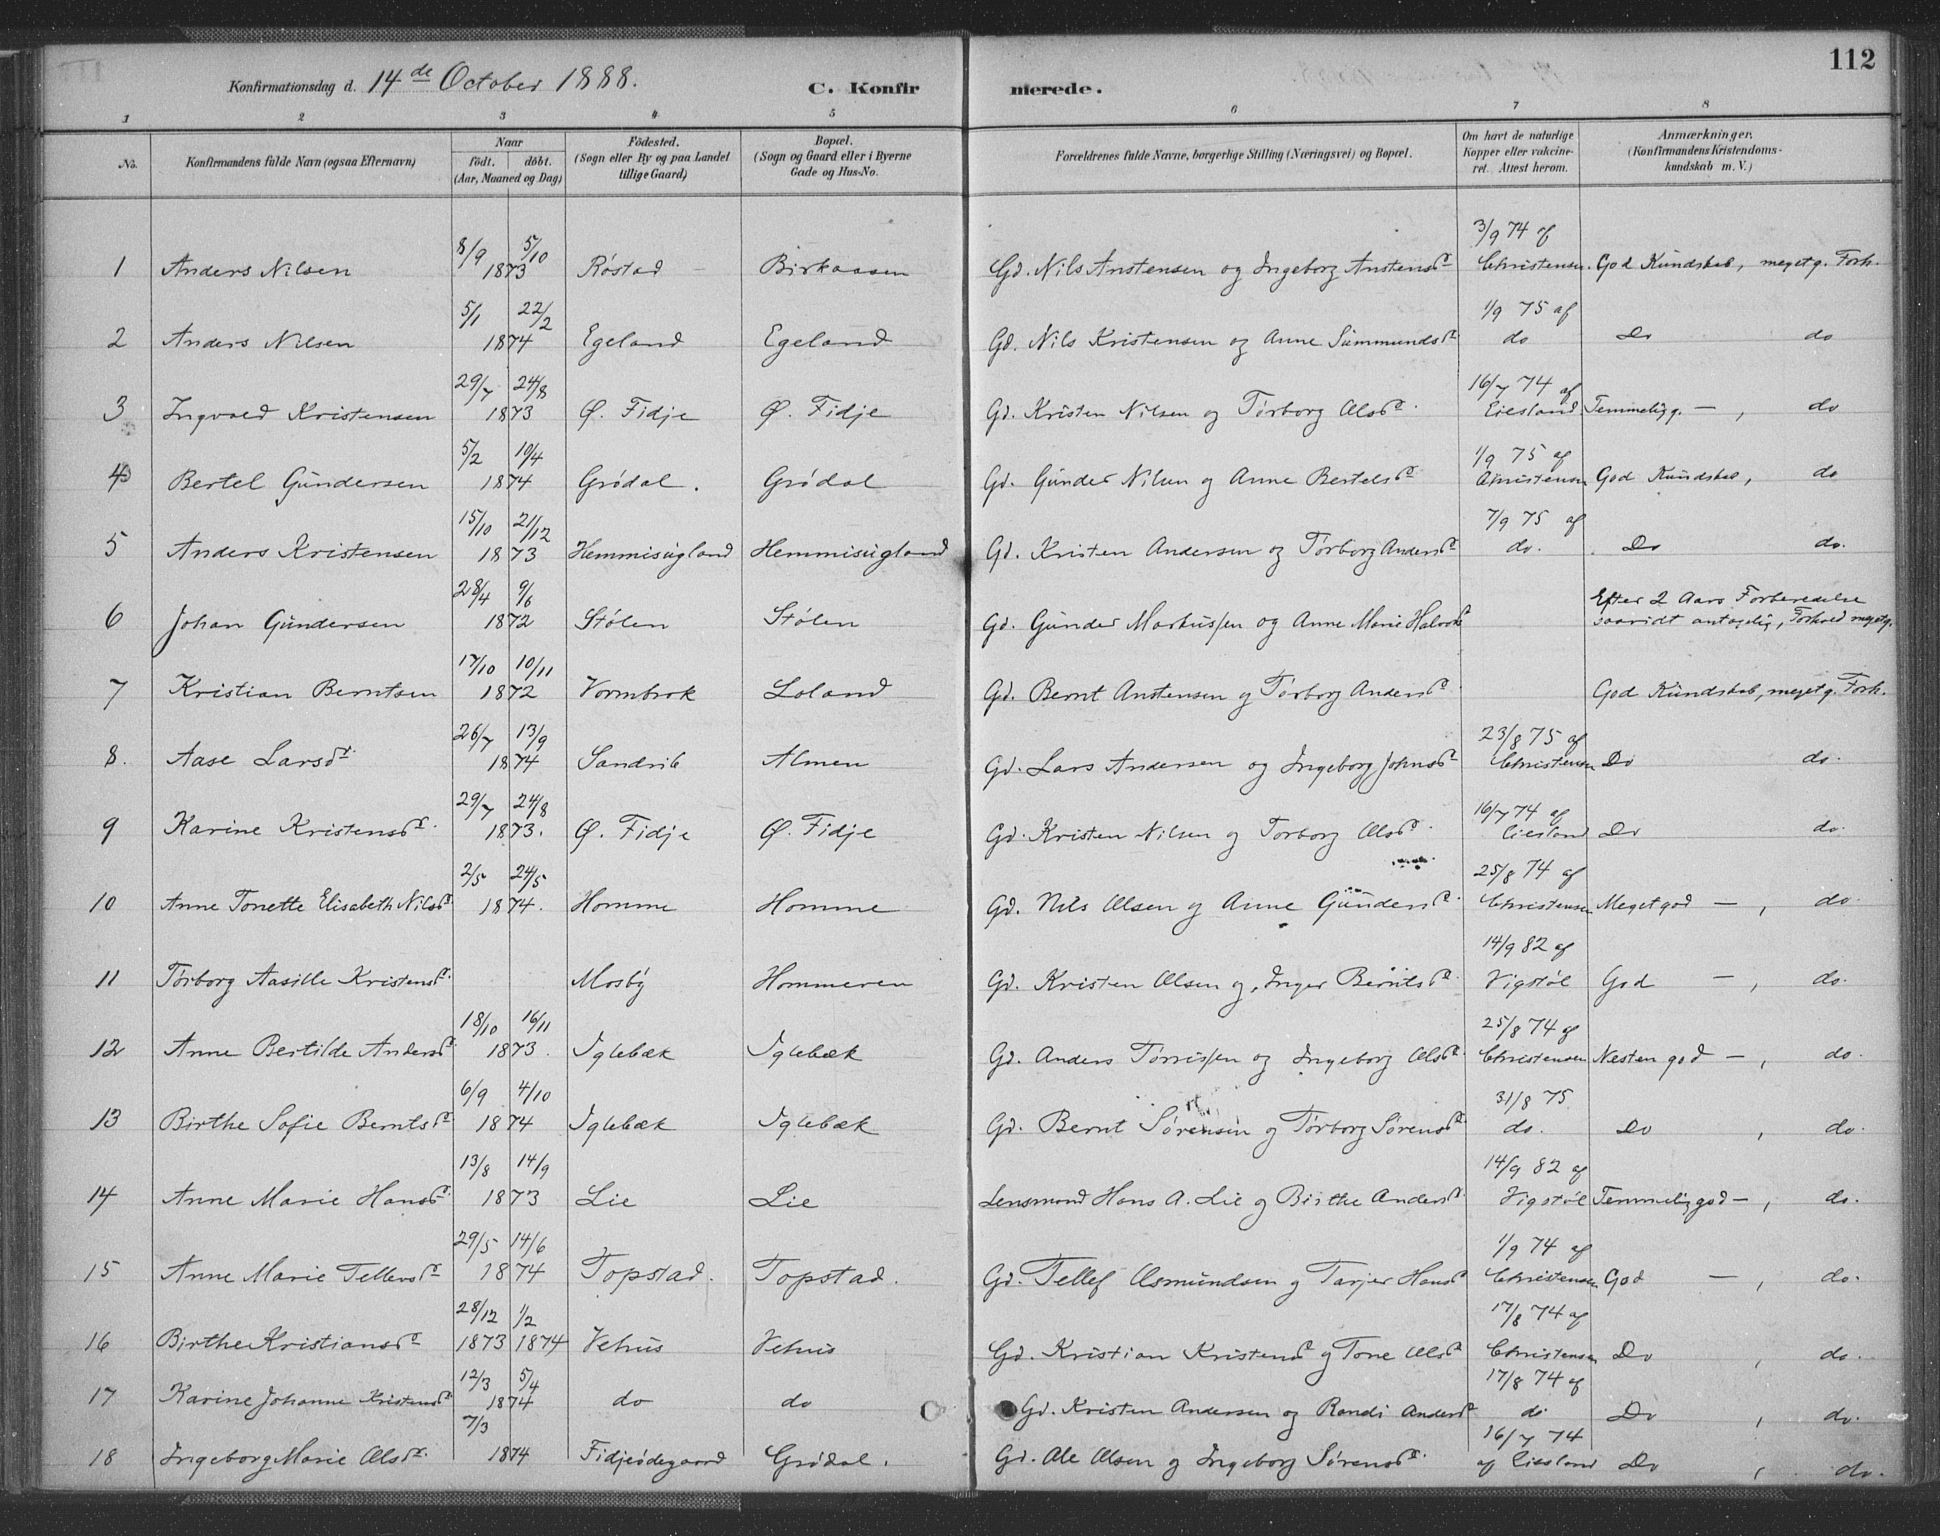 112
Konfirmationsdag d. 14de October 1888. C. Konfirmerede.
1 2 3 4 5 6 7 8
No. Konfirmandens fulde Navn (ogsaa Efternavn) Naar født. døbt. (Aar, Maaned og Dag) Fødested. (Sogn eller By og paa Landet tillige Gaard) Bopæl. (Sogn og Gaard eller i Byerne Gade og Hus-No. Forældrenes fulde Navne, borgerlige Stilling (Næringsvei) og Bopæl. Om havt de naturlige Kopper eller vakcineret. Attest herom. Anmærkninger. (Konfirmandens Kristendomskundskab m. V.)
1 Anders Nilsen 8/9 5/10 1873 Røstad Birkaasen Gd. Nils Anstensen og Ingeborg Anstensd. 3/9 74 af Christensen. God Kundskab, meget g. Forh.
2 Anders Nilsen 5/1 22/2 1874 Egeland Egeland Gd. Nils Kristensen og Anne Summundsd. 1/9 75 af do Do do
3 Ingvald Kristensen 29/7 24/8 1873 Ø. Fidje Ø. Fidje Gd. Kristen Nilsen og Tørborg Olsd. 16/7 74 af Eiesland Temmelig g. — , do
4 Bertel Gundersen 5/2 10/4 1874 Grødal. Grødal Gd. Gunder Nilsen og Anne Bertelsd. 1/9 75 af Christensen God Kundskab, do
5 Anders Kristensen 15/10 21/12 1873 Hemmisugland Hemmisugland Gd. Kristen Andersen og Tørborg Andersd. 7/9 75 af do. Do do.
6 Johan Gundersen 28/4 9/6 1872 Stølen Stølen Gd. Gunder Markussen og Anne Marie Halvorsd. Efter 2 Aars Forberedelse saavidt antagelig, Forhold meget g.
7 Kristian Berntsen 17/10 10/11 1872 Vormbrok Loland Gd. Bernt Anstensen og Tørborg Andersd. God Kundskab, meget g. Forh.
8. Aase Larsd. 26/7 13/9 1874 Sandrib Almen Gd. Lars Andersen og Ingeborg Johnsd. 23/8 75 af Christensen Do do.
9 Karine Kristensd. 29/7 24/8 1873. Ø. Fidje Ø. Fidje Gd. Kristen Nilsen og Torborg Olsd. 16/7 74 af Eiesland Do do.
10 Anne Tonette Elisabeth Nilsd. 2/5 24/5 1874. Homme Homme Gd. Nils Olsen og Anne Gundersd. 25/8 74 af Christensen Meget god — , do.
11 Tørborg Aasille Kristensd. Mosby Hommeren Gd. Kristen Olsen og Inger Berntsd. 14/9 82 af Vigstøl God — , do.
12 Anne Bertilde Andersd. 18/10 16/11 1873. Iglebæk Iglebæk Gd. Anders Tørrissen og Ingeborg Olsd. 25/8 74 af Christensen Nesten god — , do.
13 Birthe Sofie Berntsd. 6/9 4/10 1874 Iglebæk Iglebæk Gd. Bernt Sørensen og Tørborg Sørensd. 31/8 75 do. Do , do.
14 Anne Marie Hansd. 13/8 14/9 1873 Lie Lie Lensmand Hans A. Lie og Birthe Andersd. 14/9 82 af Vigstøl Temmelig god — , do.
15 Anne Marie Tellevsd. 29/5 14/6 1874 Topstad. Topstad. Gd. Tellef Osmundsen og Tarjer Hansd. 1/9 74 af Christensen God — , do.
16 Birthe Kristiansd. 28/12 1873 1/2 1874 Vehus Vehus Gd. Kristian Kristensd. og Tone Olsd. 17/8 74 af Christensen Do , do.
17 Karine Johanne Kristensd. 12/3 5/4 1874 do do Gd. Kristen Andersen og Randi Andersd. 17/8 74 af do Do , do.
18 Ingeborg Marie Olsd. 7/3 1874 Fidjeødegaard Grødal. Gd. Ole Olsen og Ingeborg Sørensd. 16/7 74 af Eiesland Do , do.